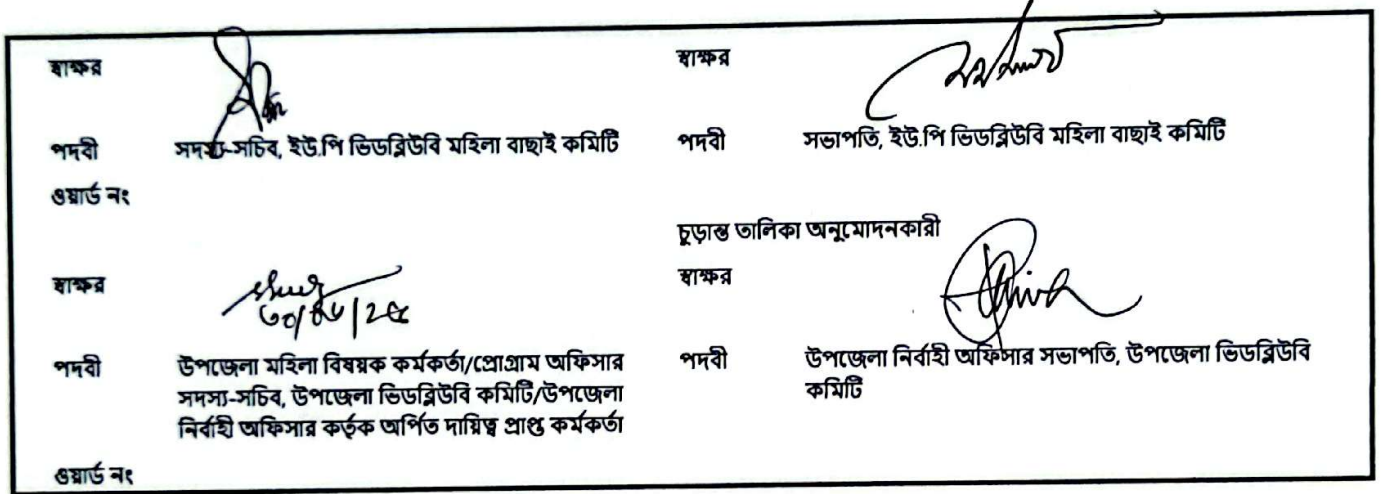 স্বাক্ষর
পদবী সদস্য-সচিব, ইউ.পি ভিডব্লিউবি মহিলা বাছাই কমিটি
ওয়ার্ড নং
স্বাক্ষর
পদবী সভাপতি, ইউ.পি ভিডব্লিউবি মহিলা বাছাই কমিটি
স্বাক্ষর
পদবী উপজেলা মহিলা বিষয়ক কর্মকর্তা/প্রোগ্রাম অফিসার
সদস্য-সচিব, উপজেলা ভিডব্লিউবি কমিটি/উপজেলা
নির্বাহী অফিসার কর্তৃক অর্পিত দায়িত্ব প্রাপ্ত কর্মকর্তা
ওয়ার্ড নং
চুড়ান্ত তালিকা অনুমোদনকারী
স্বাক্ষর
পদবী উপজেলা নির্বাহী অফিসার সভাপতি, উপজেলা ভিডব্লিউবি
কমিটি